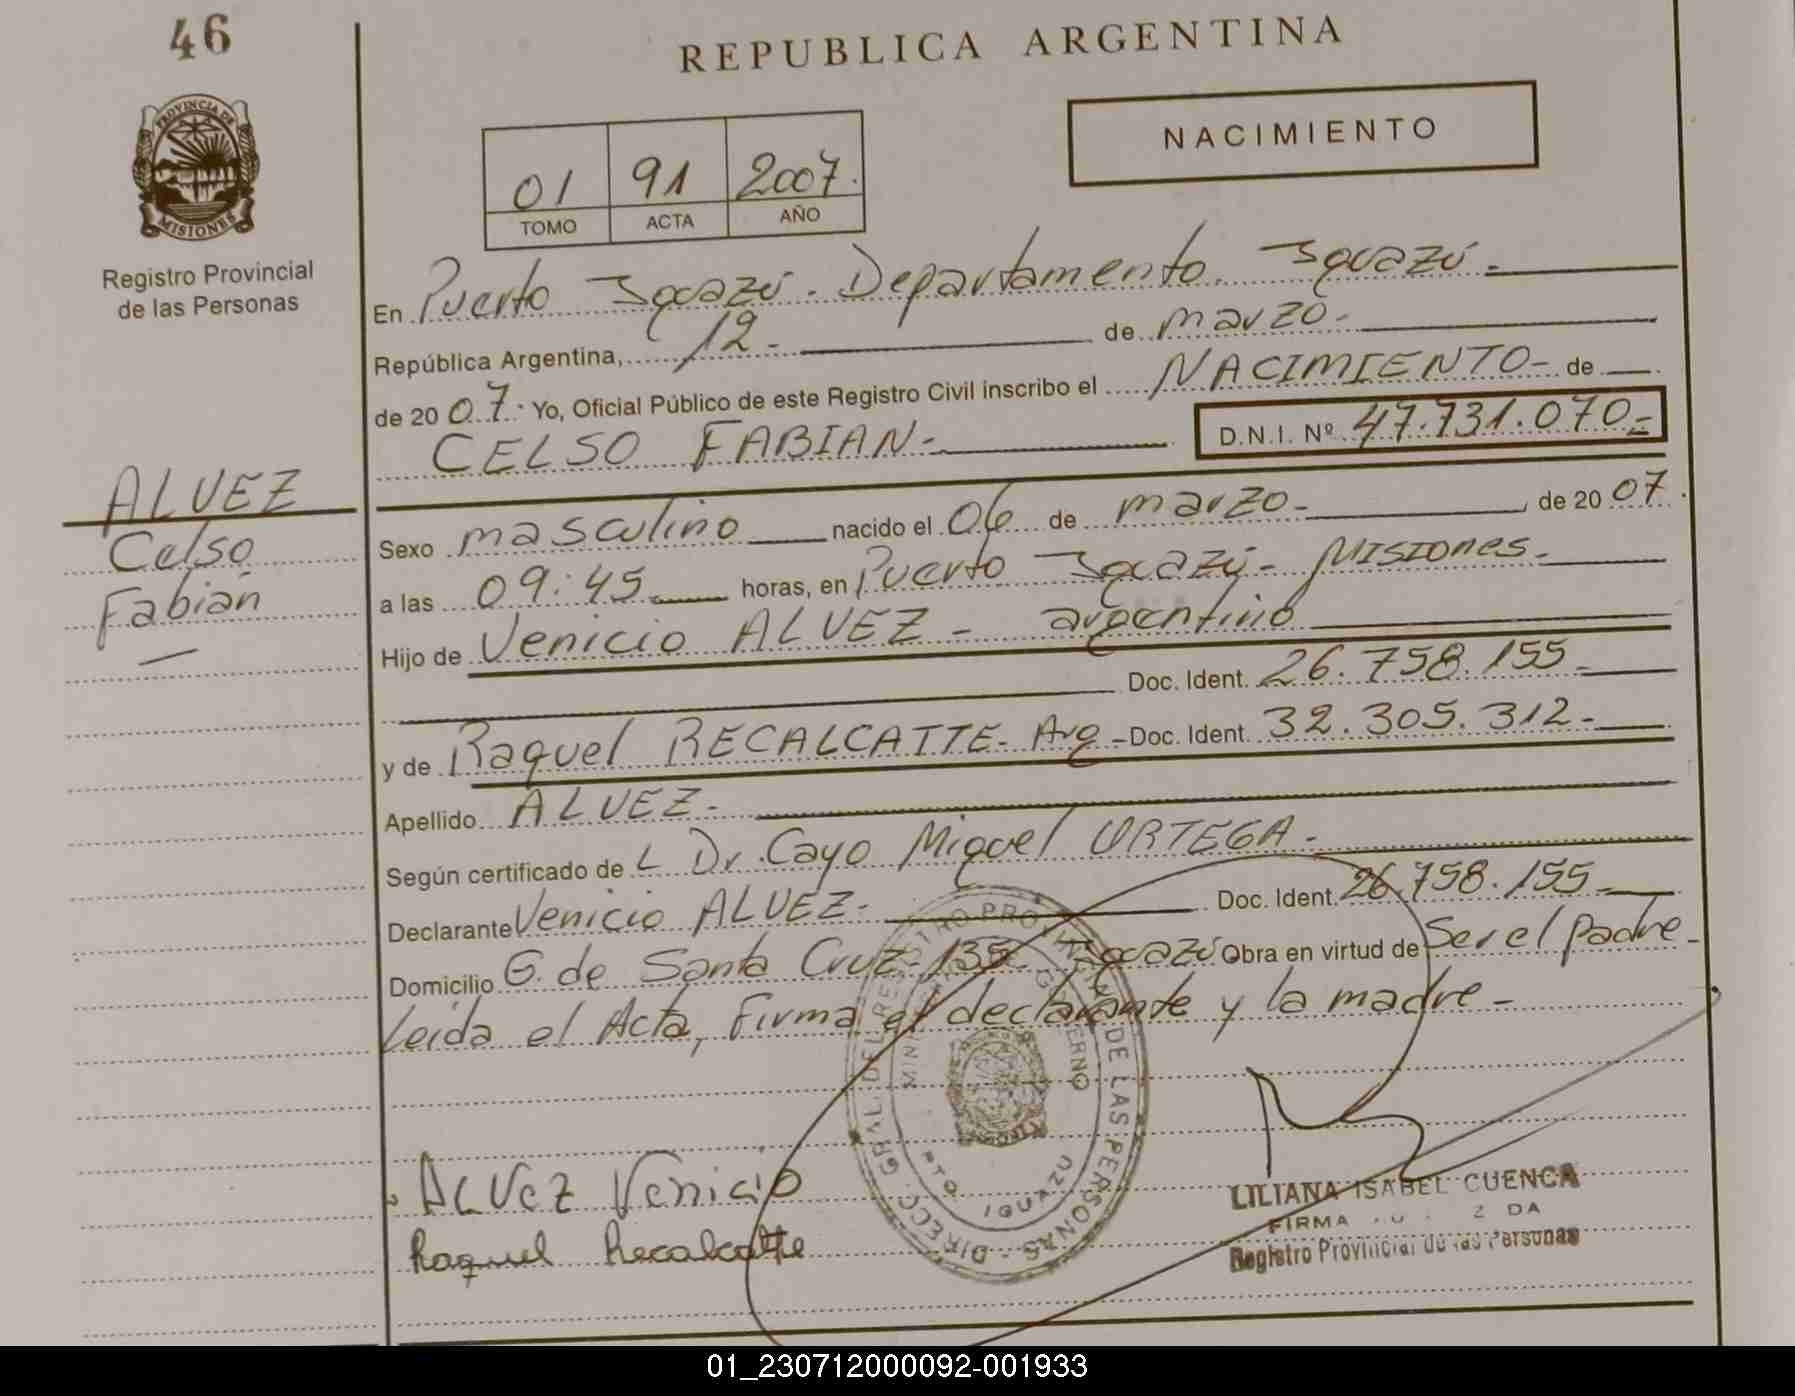 46
REPUBLICA ARGENTINA
NACIMIENTO
PROVINCIA DE
MISIONES
Registro Provincial
de las Personas
01 91 2007.
TOMO ACTA AÑO
En Puerto Iguazú. Departamento. Iguazú.
República Argentina, 12 de marzo
de 2007. Yo, Oficial Público de este Registro Civil inscribo el NACIMIENTO de
CELSO FABIAN D.N.I. Nº 47.731.070
ALVEZ
Celso
Fabián
Sexo masculino nacido el 06 de marzo de 2007.
a las 09:45 horas, en Puerto Iguazú - Misiones
Hijo de Venicio ALVEZ - argentino
Doc. Ident. 26.758.155
y de Raquel RECALCATTE - Arg - Doc. Ident. 32.305.312
Apellido ALVEZ
Según certificado de L Dr. Cayo Miguel ORTEGA
Declarante Venicio ALVEZ Doc. Ident. 26.758.155
Domicilio G. de Santa Cruz 135 Iguazú Obra en virtud de Ser el padre
Leída el Acta, Firma el declarante y la madre -
DIRECC. GRAL. DEL REGISTRO PROVINCIAL DE LAS PERSONAS
PTO IGUAZU
ALVEZ Venicio
Raquel Recalcatte
LILIANA ISABEL CUENCA
FIRMA
Registro Provincial de las Personas
01_230712000092-001933